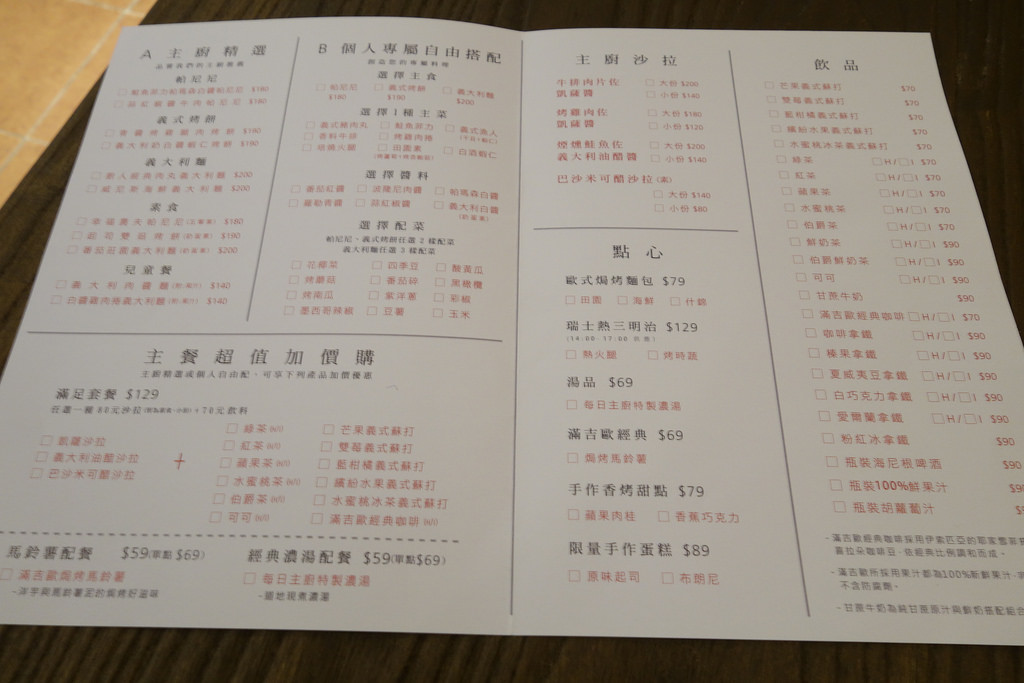 A 主廚精選
品嘗我們的主廚推薦
帕尼尼
□ 鮭魚菲力帕瑪森白醬帕尼尼 $180
□ 蒜紅椒醬牛肉帕尼尼 $180
義式烤餅
□ 青醬烤雞腿肉烤餅 $190
□ 義大利奶白醬蝦仁烤餅 $190
義大利麵
□ 獵人經典肉丸義大利麵 $200
□ 威尼斯海鮮義大利麵 $200
素食
$180
□ 起司雙菇烤餅(奶蛋素) $190
□ 番茄莊園義大利麵(奶蛋素) $200
兒童餐
□ 義大利肉醬麵(附:果汁) $140
□ 白醬雞肉捲義大利麵(附:果汁) $140
B 個人專屬自由搭配
創造您的專屬料理
選擇主食
□ 帕尼尼 $180
□ 義式烤餅 $190
□ 義大利麵 $200
選擇1種主菜
□ 義式豬肉丸 □ 鮭魚菲力 □ 義式漁人
□ 香料牛排 □ 烤雞肉捲
□ 焙燒火腿 □ 田園素 □ 白酒蝦仁
選擇醬料
□ 番茄紅醬 □ 波隆尼肉醬 □ 帕瑪森白醬
□ 蘿勒青醬 □ 蒜紅椒醬 □ 義大利白醬
(奶蛋素)
選擇配菜
帕尼尼、義式烤餅任選 2 樣配菜
義大利麵任選 3 樣配菜
□ 花椰菜 □ 四季豆 □ 酸黃瓜
□ 烤蘑菇 □ 番茄碎 □ 黑橄欖
□ 烤南瓜 □ 紫洋蔥 □ 彩椒
□ 墨西哥辣椒 □ 豆薯 □ 玉米
主餐超值加價購
主廚精選或個人自由配、可享下列產品加價優惠
滿足套餐 $129
任選一種80元沙拉 + 70元飲料
□ 凱薩沙拉
□ 義大利油醋沙拉
□ 巴沙米可醋沙拉
+
□ 綠茶(H/I) □ 芒果義式蘇打
□ 紅茶(H/I) □ 雙莓義式蘇打
□ 蘋果茶(H/I) □ 藍柑橘義式蘇打
□ 水蜜桃茶(H/I) □ 繽紛水果義式蘇打
□ 伯爵茶(H/I) □ 水蜜桃冰茶義式蘇打
□ 可可(H/I) □ 滿吉歐經典咖啡(H/I)
馬鈴薯配餐 $59(單點$69)
□ 滿吉歐焗烤馬鈴薯
~洋芋與馬鈴薯泥的焗烤好滋味
經典濃湯配餐 $59(單點$69)
□ 每日主廚特製濃湯
~當地現煮濃湯
主廚沙拉
牛排肉片佐 □ 大份 $200
凱薩醬 □ 小份 $140
烤雞肉佐 □ 大份 $180
凱薩醬 □ 小份 $120
煙燻鮭魚佐 □ 大份 $200
義大利油醋醬 □ 小份 $140
巴沙米可醋沙拉(素)
□ 大份 $140
□ 小份 $80
點心
歐式焗烤麵包 $79
□ 田園 □ 海鮮 □ 什錦
瑞士熱三明治 $129
(14:00-17:00 供應)
□ 熱火腿 □ 烤時蔬
湯品 $69
□ 每日主廚特製濃湯
滿吉歐經典 $69
□ 焗烤馬鈴薯
手作香烤甜點 $79
□ 蘋果肉桂 □ 香蕉巧克力
限量手作蛋糕 $89
□ 原味起司 □ 布朗尼
飲品
□ 芒果義式蘇打 $70
□ 雙莓義式蘇打 $70
□ 藍柑橘義式蘇打 $70
□ 繽紛水果義式蘇打 $70
□ 水蜜桃冰茶義式蘇打 $70
□ 綠茶 □H/□I $70
□ 紅茶 □H/□I $70
□ 蘋果茶 □H/□I $70
□ 水蜜桃茶 □H/□I $70
□ 伯爵茶 □H/□I $70
□ 鮮奶茶 □H/□I $90
□ 伯爵鮮奶茶 □H/□I $90
□ 可可 □H/□I $90
□ 甘蔗牛奶 $90
□ 滿吉歐經典咖啡 □H/□I $70
□ 咖啡拿鐵 □H/□I $90
□ 榛果拿鐵 □H/□I $90
□ 夏威夷豆拿鐵 □H/□I $90
□ 白巧克力拿鐵 □H/□I $90
□ 愛爾蘭拿鐵 □H/□I $90
□ 粉紅冰拿鐵 $90
□ 瓶裝海尼根啤酒 $90
□ 瓶裝100%鮮果汁
□ 瓶裝胡蘿蔔汁
~滿吉歐經典咖啡採用伊索匹亞的耶家雪菲
喜拉朵咖啡豆,依經典比例調和而成。
~滿吉歐所採用果汁都為100%新鮮果汁,
不含防腐劑。
~甘蔗牛奶為純甘蔗原汁與鮮奶搭配組合